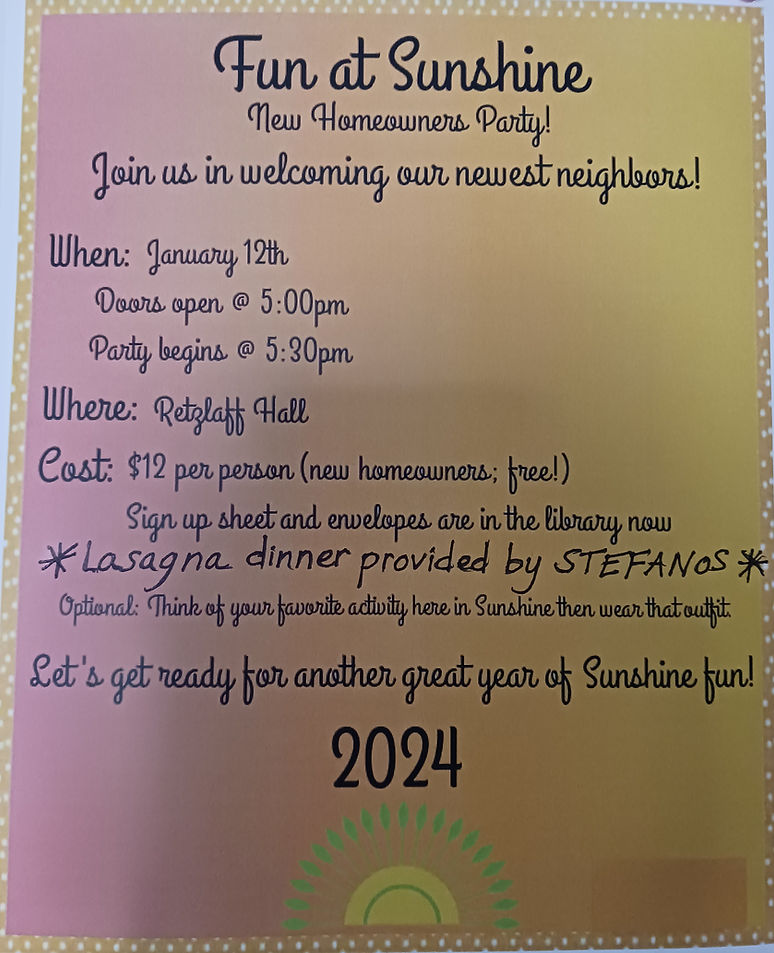 Fun at Sunshine
New Homeowners Party!
Join us in welcoming our newest neighbors!
When: January 12th
Doors open @ 5:00pm
Party begins @ 5:30pm
Where: Retzlaff Hall
Cost: $12 per person (new homeowners; free!)
Sign up sheet and envelopes are in the library now
*Lasagna dinner provided by STEFANOS*
Optional: Think of your favorite activity here in Sunshine then wear that outfit.
Let's get ready for another great year of Sunshine fun!
2024